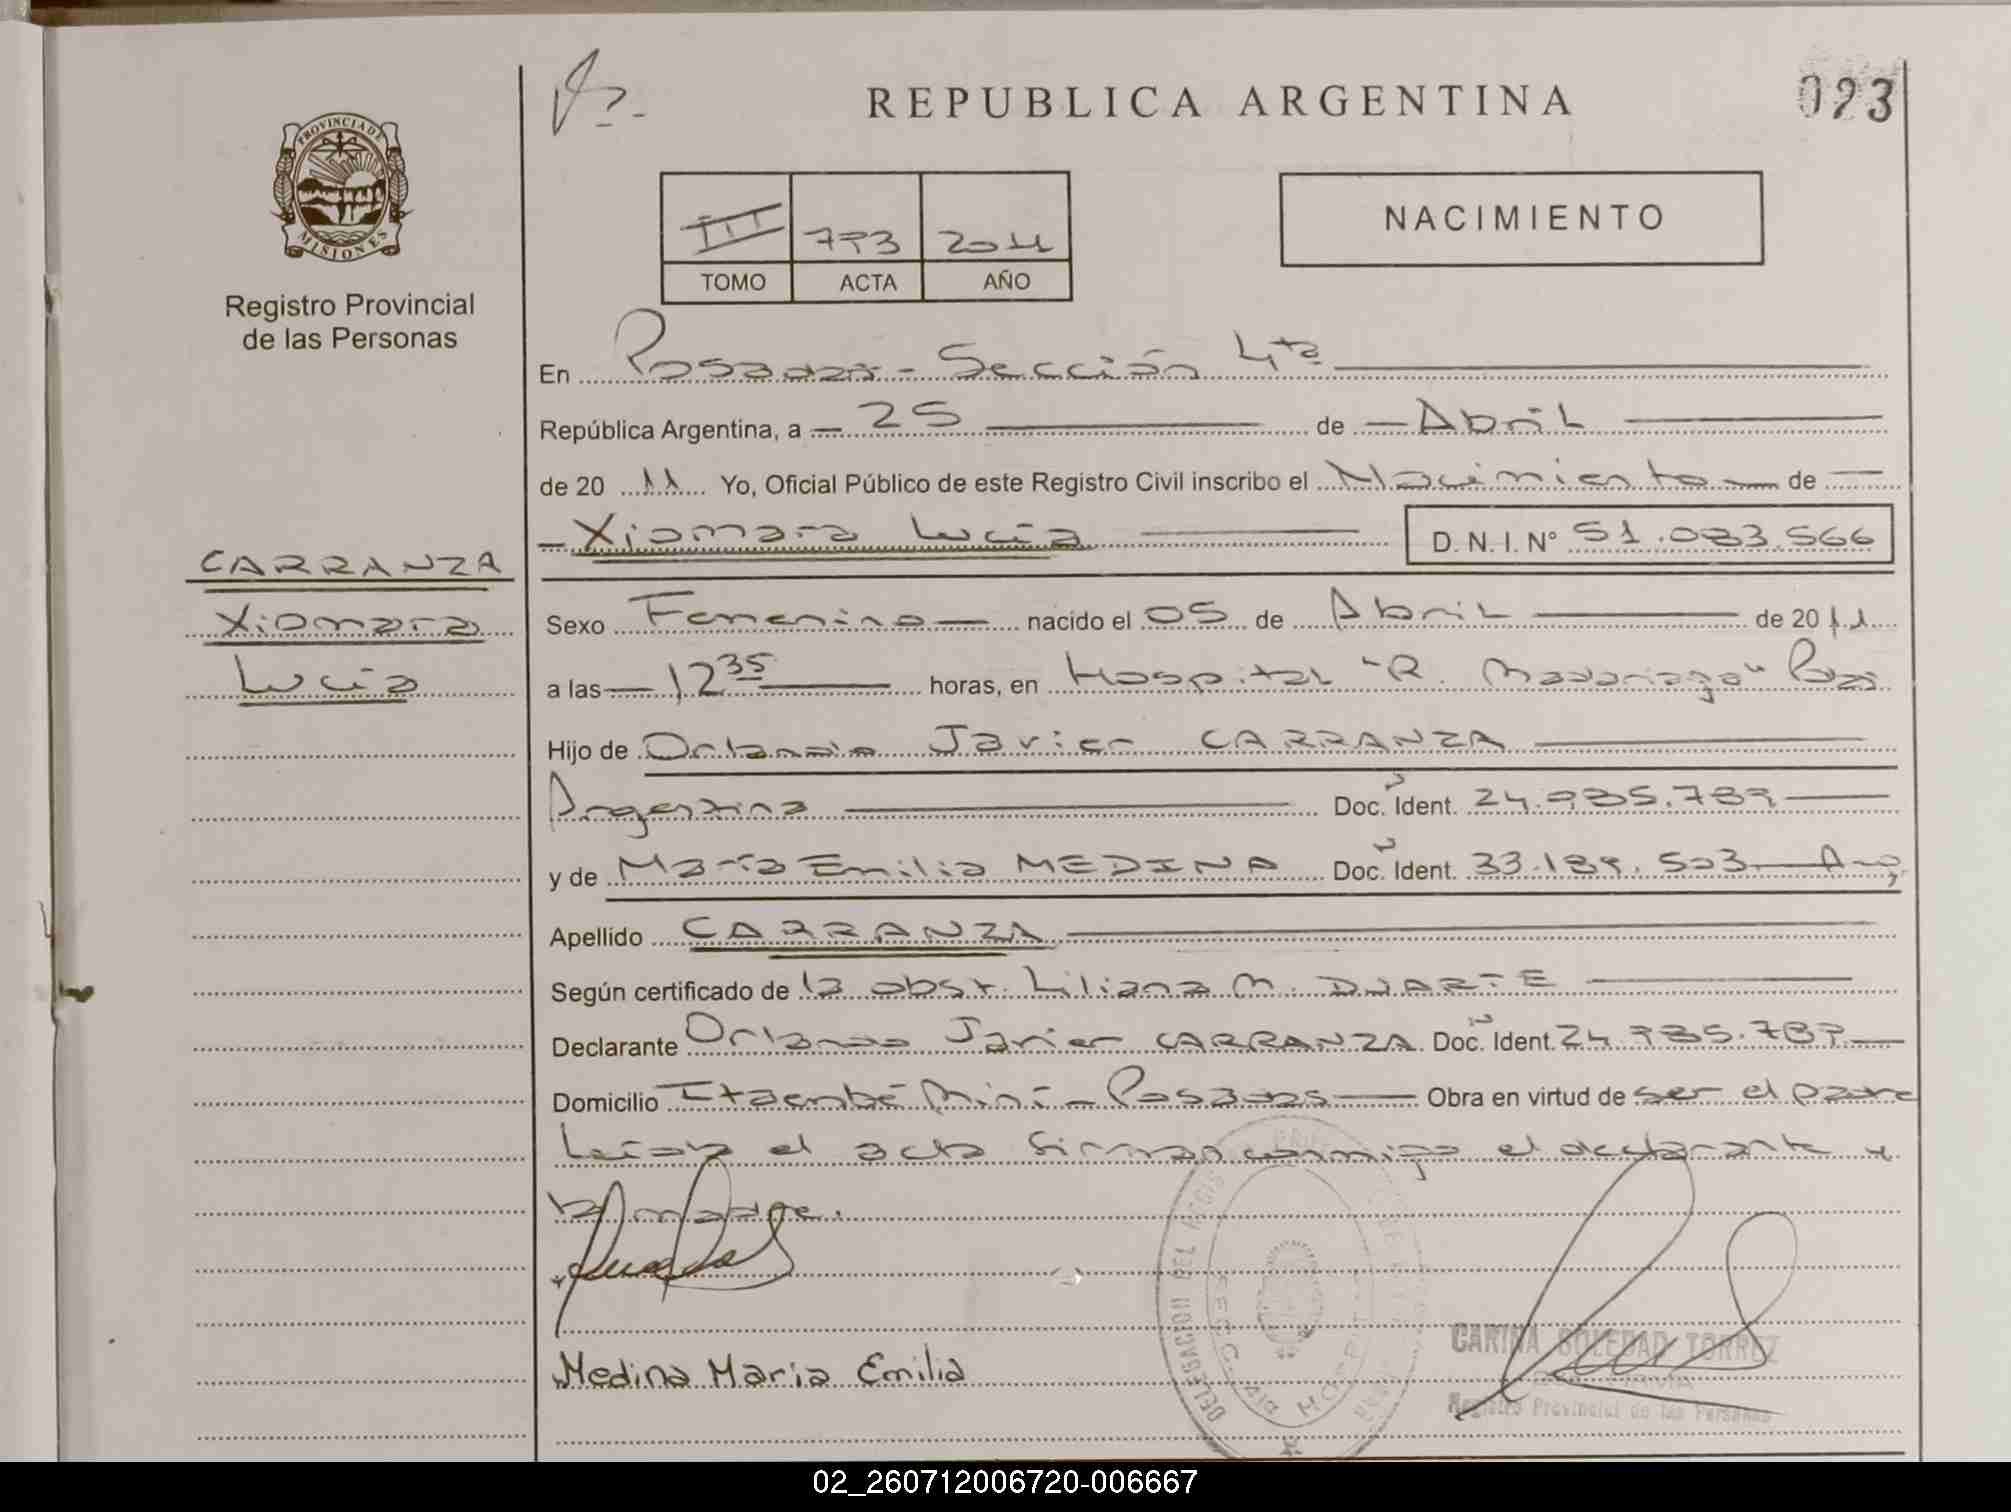 REPUBLICA ARGENTINA
093
PROVINCIA DE
MISIONES
Registro Provincial
de las Personas
III 793 2011
TOMO ACTA AÑO
NACIMIENTO
En Posadas - Sección 4ta
República Argentina, a 25 de Abril
de 20 11 Yo, Oficial Público de este Registro Civil inscribo el Nacimiento de
Xiomara Lucía D. N. I. N° 51.083.566
CARRANZA
Xiomara
Lucía
Sexo Femenino nacido el 05 de Abril de 20 11
a las 12 35 horas, en Hospital "R. Madariaga" Pdas
Hijo de Orlando Javier CARRANZA
Argentina Doc. Ident. 24.
y de María Emilia MEDINA Doc. Ident. 33.189.503 Arg
Apellido CARRANZA
Según certificado de la obst. Liliana M. DUARTE
Declarante Orlando Javier CARRANZA Doc. Ident. 24.
Domicilio Itaembé Miní - Posadas Obra en virtud de ser el padre
Leída el acta firman conmigo el declarante y
la madre.
Medina Maria Emilia
DELEGACION DEL REGIS
CARINA SOLEDAD TORREZ
Registro Provincial de las Personas
02_260712006720-006667